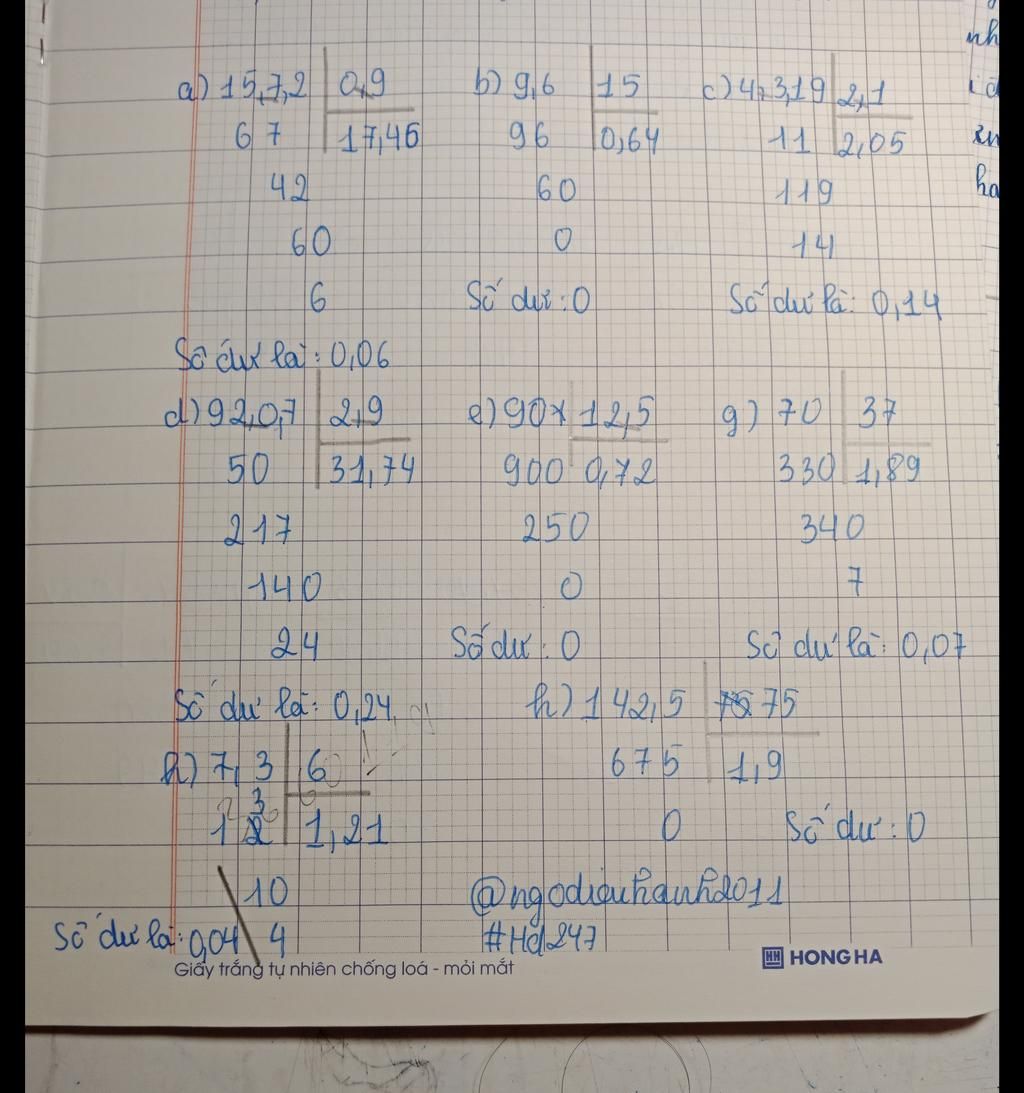 a) 15,7,2 0,9 b) 9,6 15 c) 4,3,19 2,1
67 17,46 96 0,64 11 2,05
42 60 119
60 0 14
6 Số dư : 0 Số dư là : 0,14
Số dư là : 0,06
d) 92,0,7 2,9 e) 90 12,5 g) 70 37
50 31,74 900 0,72 330 1,89
217 250 340
140 0 7
24 Số dư : 0 Số dư là : 0,07
Số dư là : 0,24 h) 142,5 75
h) 7,3 6 675 1,9
13 1,21 0 Số dư : 0
10 @ngodieuhanh2011
Số dư là : 0,04 4 #Hd247
Giấy trắng tự nhiên chống loá - mỏi mắt
HH HONG HA
nh